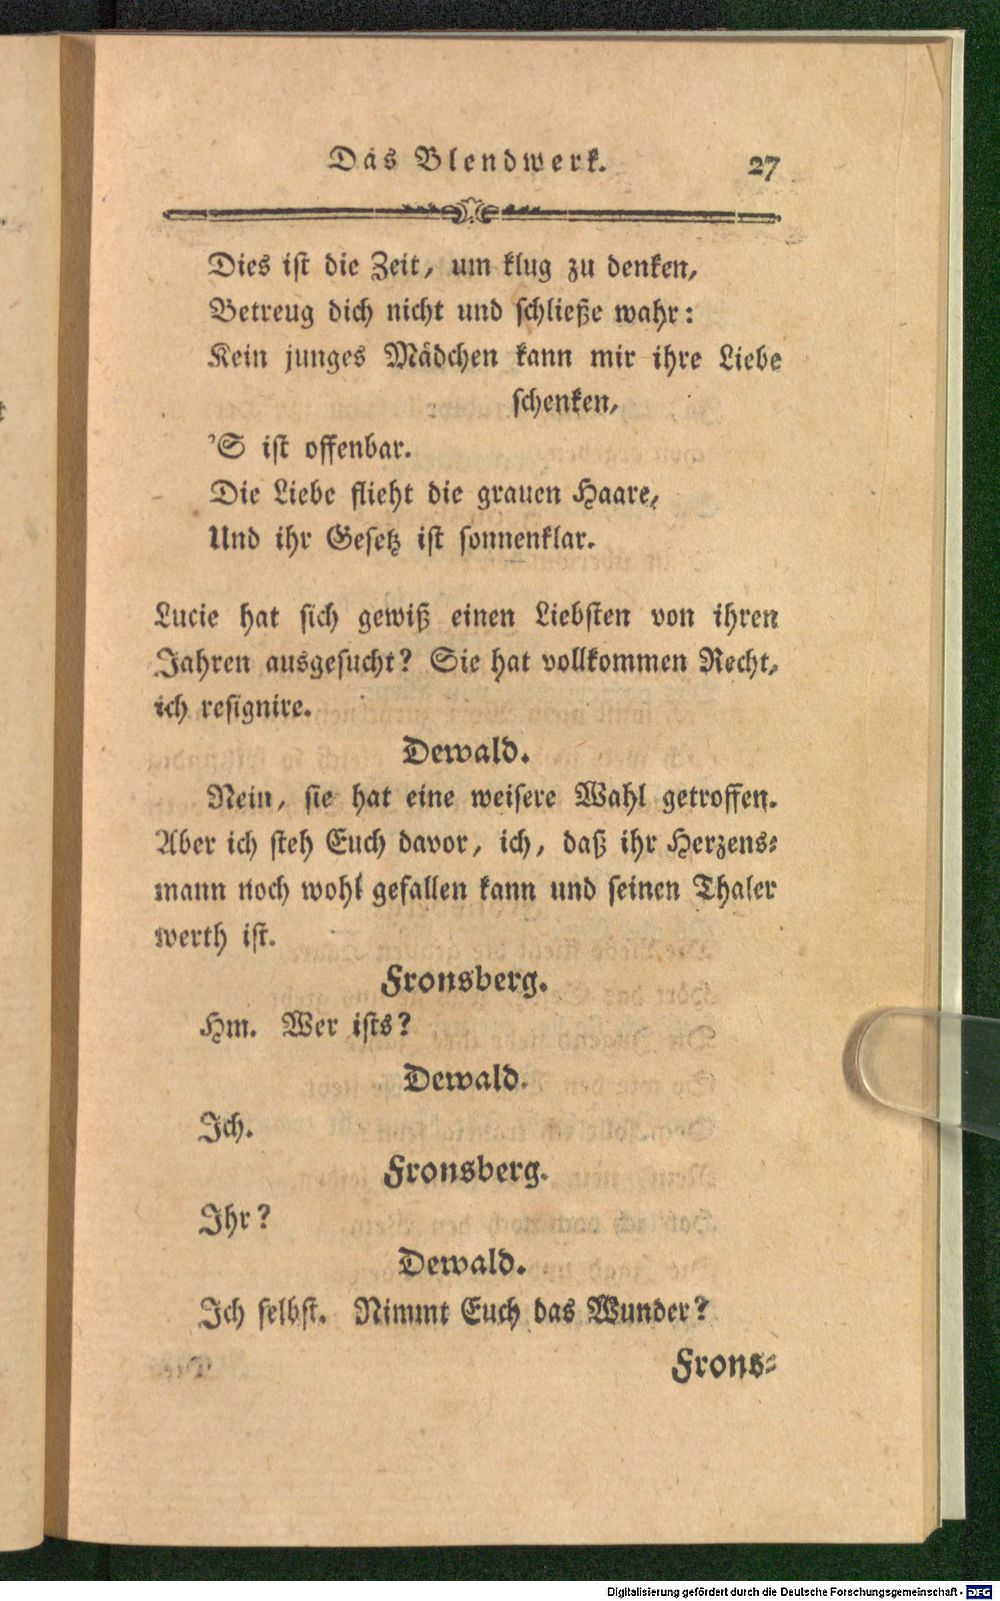 Das Blendwerk. 27
Dies ist die Zeit, um klug zu denken,
Betreug dich nicht und schließe wahr:
Kein junges Mädchen kann mir ihre Liebe
schenken,
'S ist offenbar.
Die Liebe flieht die grauen Haare,
Und ihr Gesetz ist sonnenklar.
Lucie hat sich gewiß einen Liebsten von ihren
Jahren ausgesucht? Sie hat vollkommen Recht,
ich resignire.
Dewald.
Nein, sie hat eine weisere Wahl getroffen.
Aber ich steh Euch davor, ich, daß ihr Herzens-
mann noch wohl gefallen kann und seinen Thaler
werth ist.
Fronsberg.
Hm. Wer ists?
Dewald.
Ich.
Fronsberg.
Ihr?
Dewald.
Ich selbst. Nimmt Euch das Wunder?
Frons-
Digitalisierung gefördert durch die Deutsche Forschungsgemeinschaft - DFG